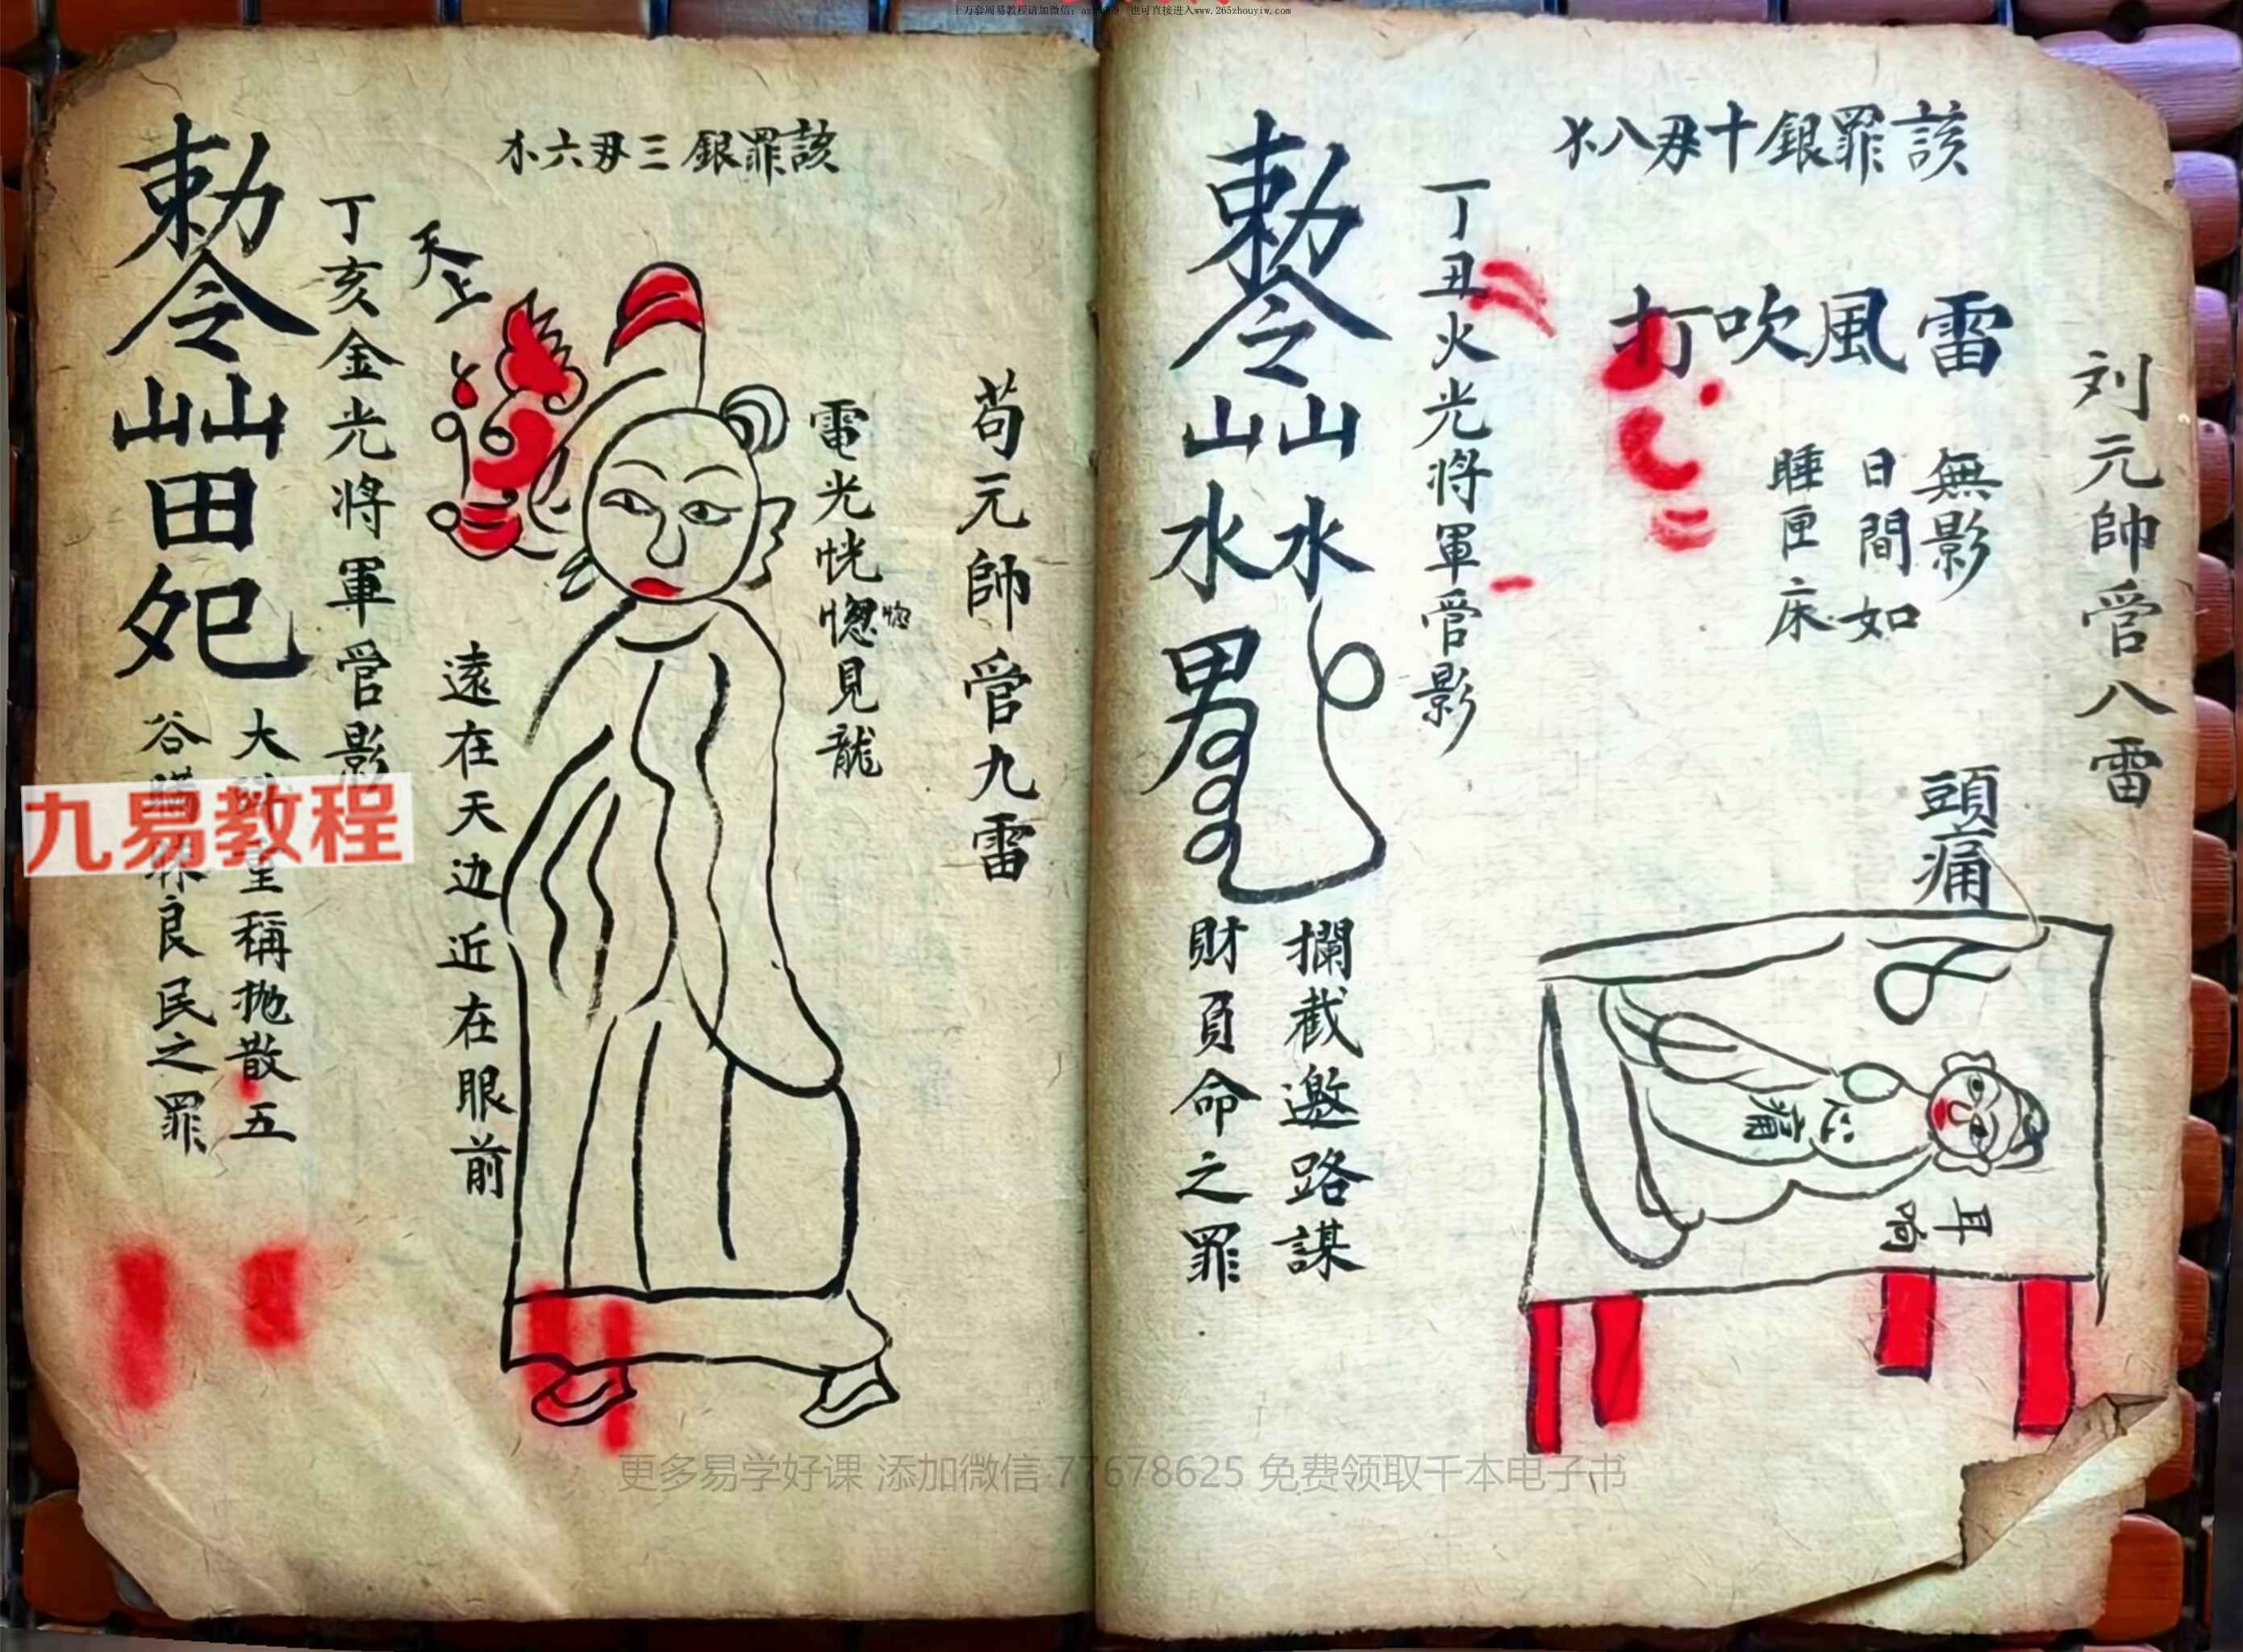 十万套周易教程请加微信:
也可直接进入www.265zhouyiw.com
該罪銀十毋八
刘元帥管八雷
雷風吹打
無影
日間如
睡匣床
頭痛
心痛
耳
丁丑火光将軍管影
勅令
山山
水水
男
攔截邀路謀
財負命之罪
該罪銀三毋六
苟元帥管九雷
電光恍惚見龍
惚
天上
遠在天边近在眼前
丁亥金光将軍管影
勅令
山山
田
大
里稱抛散五
谷
良民之罪
九易教程
更多易学好课 添加微信 77678625 免费领取千本电子书